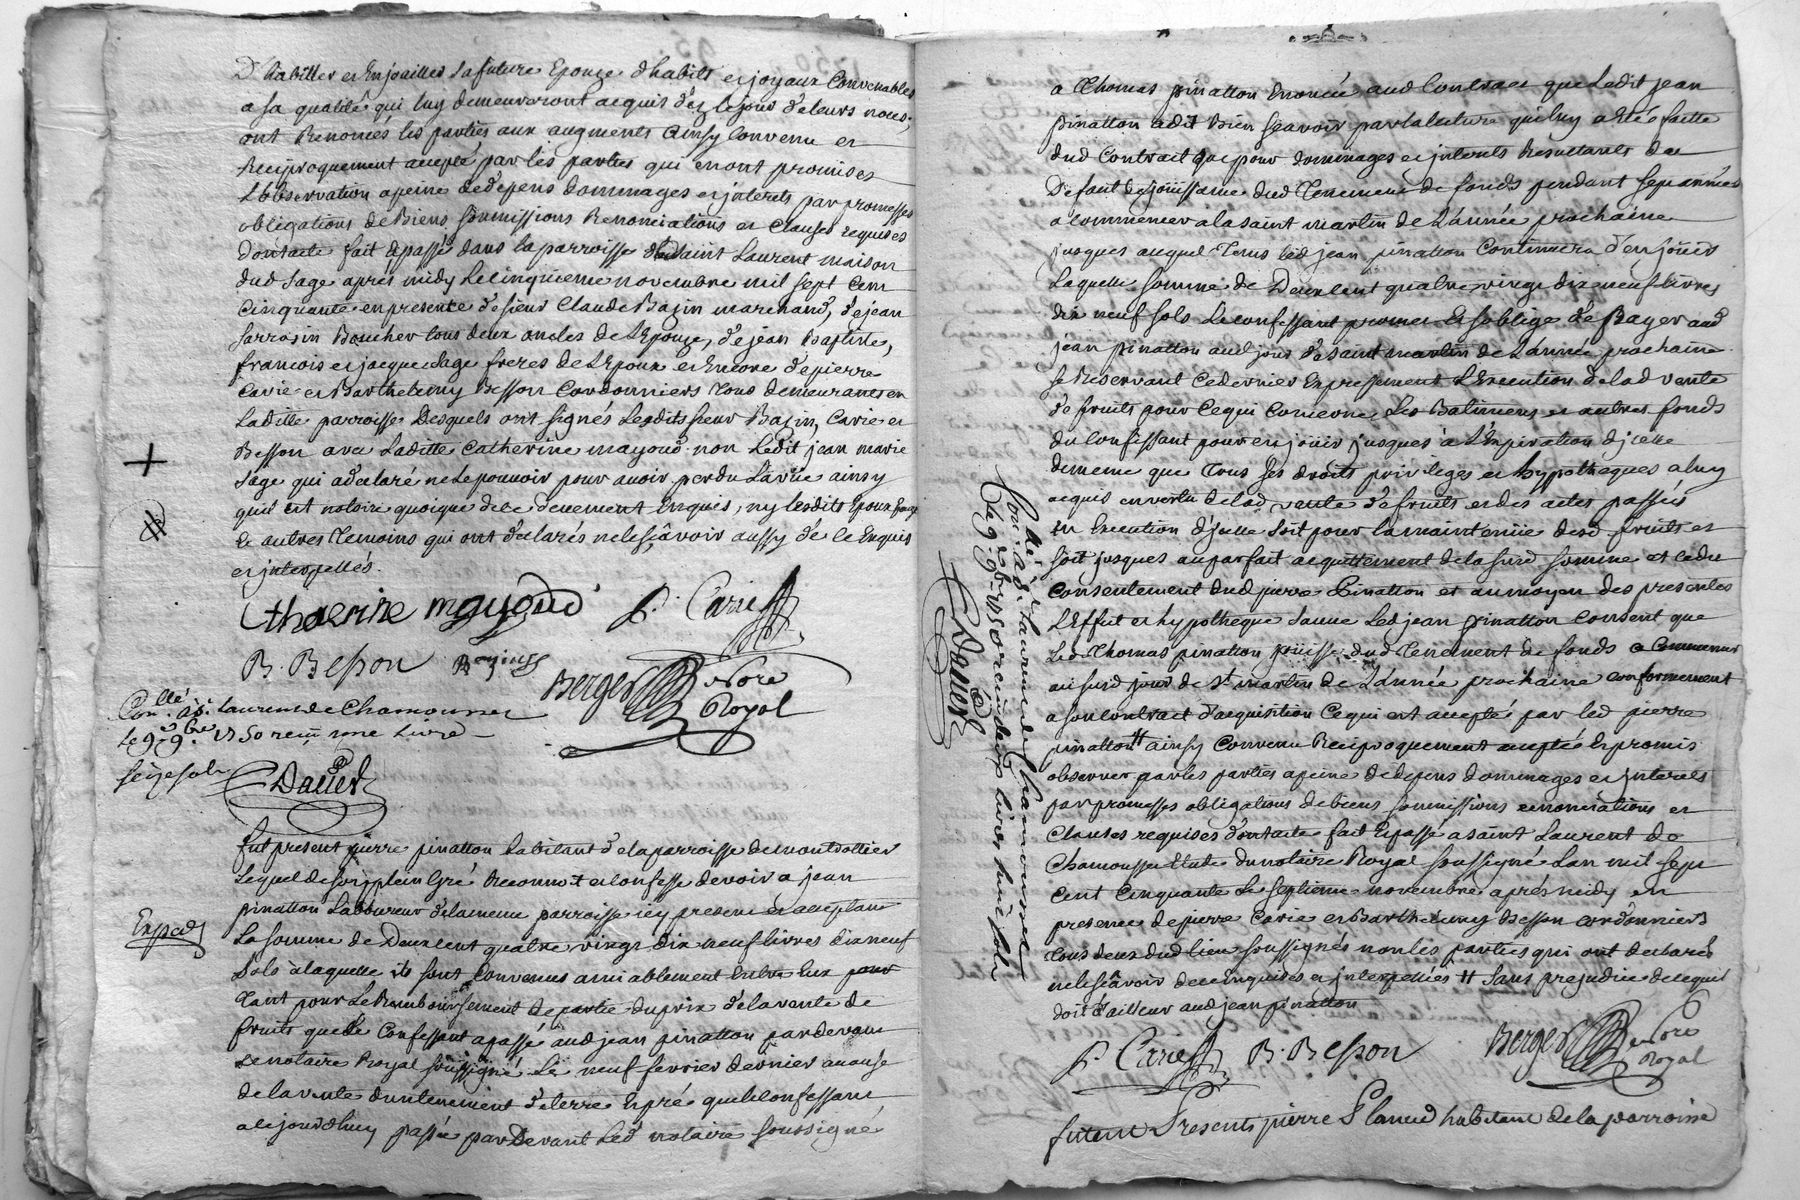 D'habiller et Enjoailler sa future Epouze d'habits et joyaux Convenables
a sa qualité qui luy demeureront acquis dez le jour de leurs noces,
ont Renoncés les parties aux augments ainsy Convenu et
Reciproquement accepté par les parties qui en ont promises
L'observation a peine de depens dommages et jnterets par promesses
obligations de Biens, soumissions Renonciations et Clauses requises
Dont acte fait et passé dans la parroisse de Saint Laurent maison
dud Sage apres midy Le cinquieme novembre mil sept Cent
Cinquante en presence de sieur Claude Bajin marchand, de jean
Sarrosin Boucher tous deux oncles de L'Epouze, de jean Baptiste,
francois et jacque Sage freres de L'Epoux et Encore de pierre
Carie et Barthelemy Besson Cordonniers Tous demeurants en
Laditte parroisse Desquels ont signés Lesdits sieur Bajin, Carie et
Besson avec Laditte Catherine mayoud non Ledit jean marie
Sage qui a declaré ne Le pouvoir pour avoir perdu La vüe ainsy
qu'il est notoire quoique de ce deuement Enquis, ny Lesdits Epoux
Et autres Temoins qui ont declarés ne le sçavoir aussy de ce Enquis
et jnterpellés.
Cthaerine mayoud P. Carie
B. Besson Bajin
Berger Nore
Royal
Conllé. à St. Laurent de Chamousset
Le 9e 9bre 1750 reçu une Livre
seize sols
Daviet
fut present pierre pinatton habitant de la parroisse de montrottier
Lequel de son plein Gré Reconnoit et Confesse devoir a jean
pinatton Laboureur de la meme parroisse icy present et acceptant
Expedié
La somme de Deux cent quatre vingt dix neuf livres dix neuf
Sols a laquelle ils sont Convenus amiablement Entre Eux pour
Tant pour Le Remboursement de partie du prix de la vente de
fruits que Le Confessant a passé aud jean pinatton par devant
Le notaire Royal soussigné Le neuf fevrier dernier a cause
de la vente d'un tenement de terre Et pré que le Confessant
a cejourd'huy passée par Devant Led notaire Soussigné
a Thomas pinatton Enoncée aud Contract que Ledit jean
pinatton a dit Bien sçavoir par la lecture qui luy a été faitte
dud Contract que pour dommages et jnterets Resultants du
Defaut de joüissance dud Tenement de fonds pendant sept années
a commencer a la saint martin de L'année prochaine
jusques auquel Tems led jean pinatton Continuera d'en joüir
Laquelle somme de Deux Cent quatre vingt dix neuf livres
dix neuf sols Le confessant promet Et s'oblige de Payer aud
jean pinatton aud jour de Saint martin de L'année prochaine
se Reservant Ce dernier Expressement L'Execution de lad vente
de fruits pour Ce qui Concerne Les Batimens et autres fonds
du Confessant pour en joüir jusques à L'Expiration d'jcelle
de meme que Tous ses droits privileges et hypotheques a luy
acquis en vertu de lad vente de fruits et des actes passés
en Execution d'jcelle soit pour la maintenüe desd fruits et
soit jusques au parfait acquittement de la susd somme et ce du
Consentement dud pierre Pinatton et au moyen des presentes
L'Effet et hypotheque sauve Led jean pinatton Consent que
Led Thomas pinatton joüisse dud Tenement de fonds a Commencer
au susd jour de St martin de L'année prochaine conformement
a son contract d'acquisition Ce qui est accepté par led pierre
pinatton # ainsy Convenu Reciproquement accepté Et promis
observer par les parties a peine de depens dommages et jnterets
par promesses obligations de biens soumissions renonciations et
Clauses requises dont acte fait Et passé a saint Laurent de
Chamousset Etude du notaire Royal soussigné L'an mil sept
cent Cinquante Le septieme novembre après midy en
presence de pierre Carie et Barthelemy Besson cordonniers
Tous deux dud lieu soussignés non les parties qui ont declarés
ne le sçavoir de ce enquises et jnterpellées # Sans prejudice de ce qui
doit d'ailleur aud jean pinatton
P. Carie B. Besson Berger Nore
Royal
Conllé. à St Laurent de Chamousset
Le 9e 9bre 1750 reçu deux livres huit sols
Daviet
furent Presents pierre Planud habitant de la parroisse